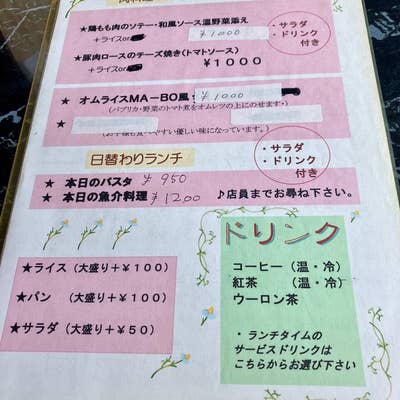 ★鶏もも肉のソテー・和風ソース温野菜添え
+ライスor
￥1000
・サラダ
・ドリンク
付き
★豚肉ロースのチーズ焼き(トマトソース)
+ライスor
￥1000
★オムライスMA－BO風・ ￥1000
(パプリカ・野菜のトマト煮をオムレツの上にのせます・)
★
(お子様も食べやすい優しい味になっています。)
日替わりランチ
・サラダ
・ドリンク
付き
★ 本日のパスタ ￥950
★ 本日の魚介料理 ￥1200
♪店員までお尋ね下さい。
★ライス (大盛り+￥100)
★パン (大盛り+￥100)
★サラダ (大盛り+￥50)
ドリンク
コーヒー (温・冷)
紅茶 (温・冷)
ウーロン茶
・ランチタイムの
サービスドリンクは
こちらからお選び下さい